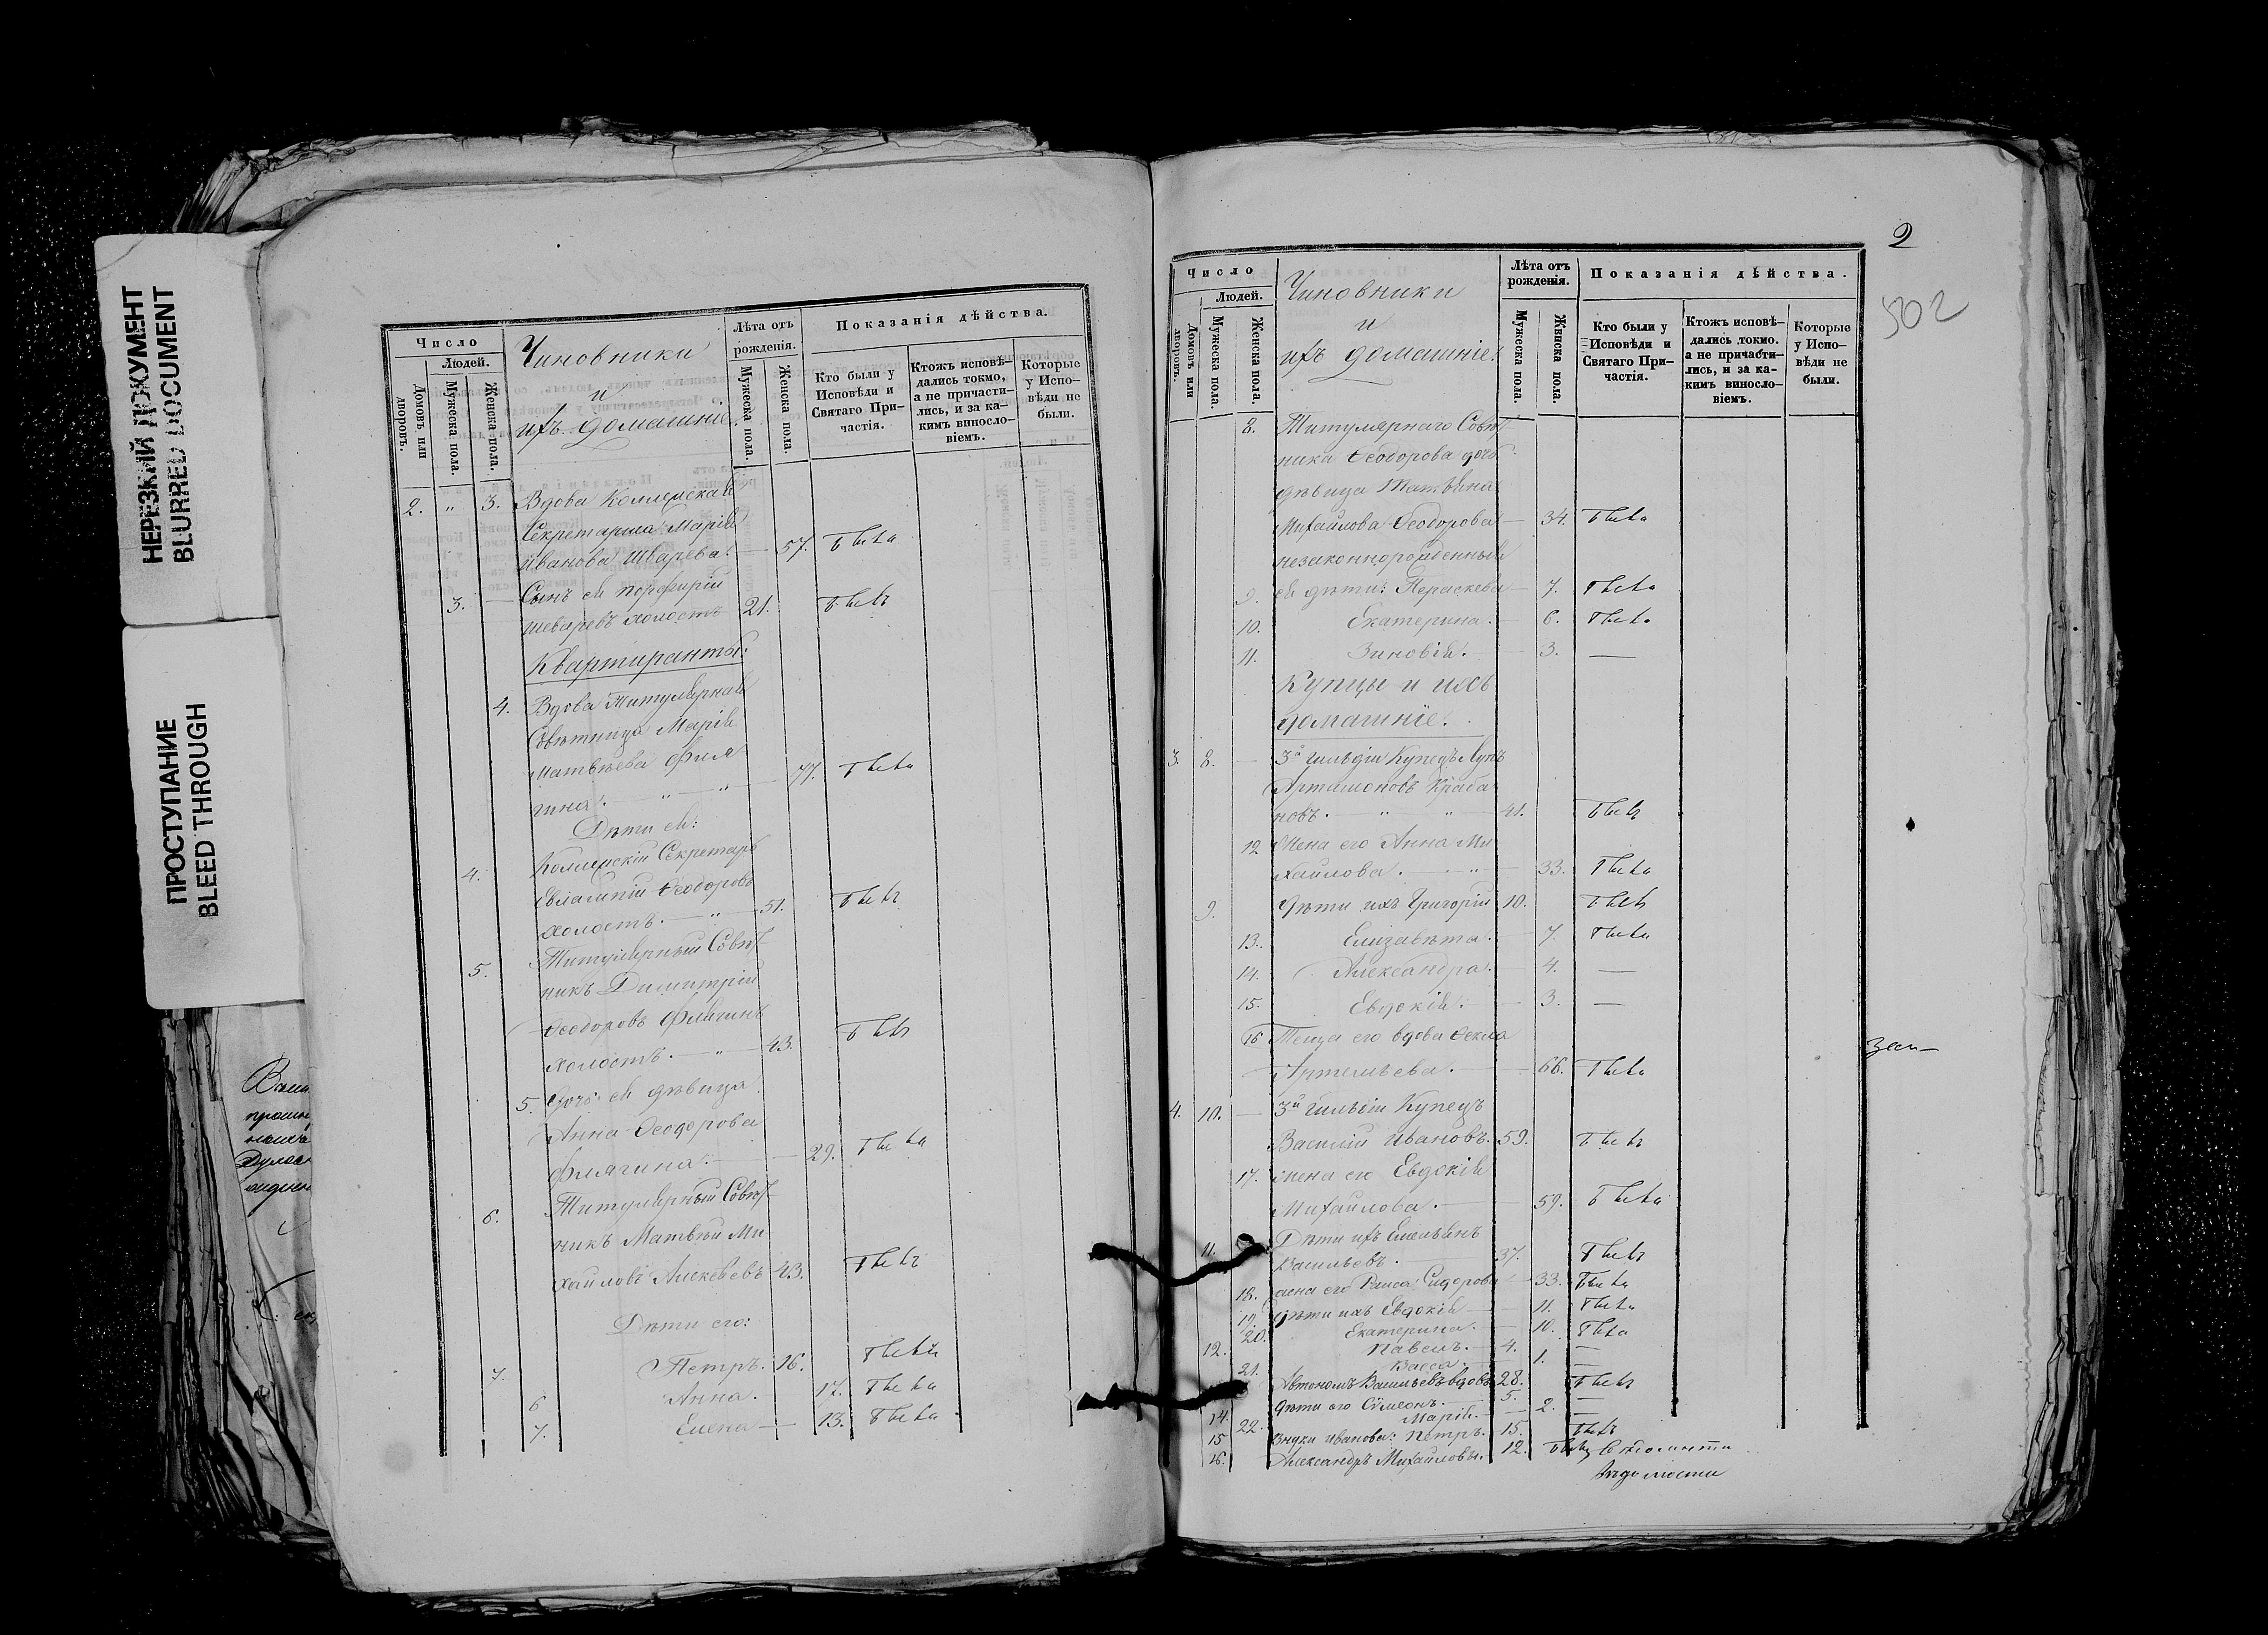 НЕРЕЗКИЙ ДОКУМЕНТ
BLURRED DOCUMENT
ПРОСТУПАНИЕ
BLEED THROUGH
Число
Людей.
Домовъ или дворовъ.
Мужеска пола.
Женска пола.
Чиновники
и
ихъ домашніе.
Лѣта отъ рожденія.
Мужеска пола.
Женска пола.
Показанія дѣйства.
Кто были у Исповѣди и Святаго Причастія.
Ктожъ исповѣдались токмо, а не причастились, и за какимъ винословіемъ.
Которые у Исповѣди не были.
2. " 3. Вдова Коллежская
Секретарша Марія
Иванова Шварева. 57. Была
3. Сынъ ея Порфирій
Шваревъ холостъ 21. Былъ
Квартиранты.
4. Вдова Титулярная
Совѣтница Марія
Матвѣева Фля
гина. " " 77. Была
Дѣти ея:
4. Коллежскій Секретарь
Евлампій Ѳеодоровъ
холостъ. " 51. Былъ
5. Титулярный Совѣт
никъ Димитрій
Ѳеодоровъ Флягинъ
холостъ. " 43. Былъ
5. Дочь ея дѣвица
Анна Ѳеодорова
Флягина. 29. Была
6. Титулярный Совѣт
никъ Матвѣй Ми
хайловъ Алексѣевъ 43. Былъ
Дѣти его:
7. Петръ. 16. Былъ
6 Анна. 17. Была
7. Елена 13. Была
2
502
Число
Людей.
Домовъ или дворовъ.
Мужеска пола.
Женска пола.
Чиновники
и
ихъ домашніе.
Лѣта отъ рожденія.
Мужеска пола.
Женска пола.
Показанія дѣйства.
Кто были у Исповѣди и Святаго Причастія.
Ктожъ исповѣдались токмо. а не причастились, и за какимъ винословіемъ.
Которые у Исповѣди не были.
8. Титулярнаго Совѣт
ника Ѳеодорова дочь
дѣвица
Михайлова Ѳеодорова 34. Была
незаконнорожденныя
9. ея дѣти: Параскева 7. Была
10. Екатерина. 6. Была
11. Зиновія. 3. —
Купцы и ихъ
домашніе.
3. 8. — 3й гильдіи Купецъ
Артамоновъ Краба
новъ. " " 41. Былъ
12 Жена его Анна Ми
хайлова. " 33. Была
9. Дѣти ихъ Григорій 10. Былъ
13. Елизавета. 7. Была
14. Александра. 4. —
15. Евдокія. 3. —
16 Теща его вдова Ѳекла
Артемьева. 66. Была
4. 10. — 3й гильдіи Купецъ
Василій Ивановъ. 59. Былъ
17. Жена его Евдокія
Михайлова. 59. Была
11. Дѣти ихъ Емельянъ
Васильевъ. 37. Былъ
18. Жена его Раиса Сидорова 33. Была
19. Дѣти ихъ Евдокія 11. Была
20. Екатерина. 10. Была
12. Павелъ. 4. —
21. Васса. 1. —
Автономъ Васильевъ вдовъ 28. Былъ
14. Дѣти его Сѵмеонъ. 5. —
22. Марія. 2. —
15 Внуки Иванова: Петръ. 15. Былъ
16. Александръ Михайловы. 12.